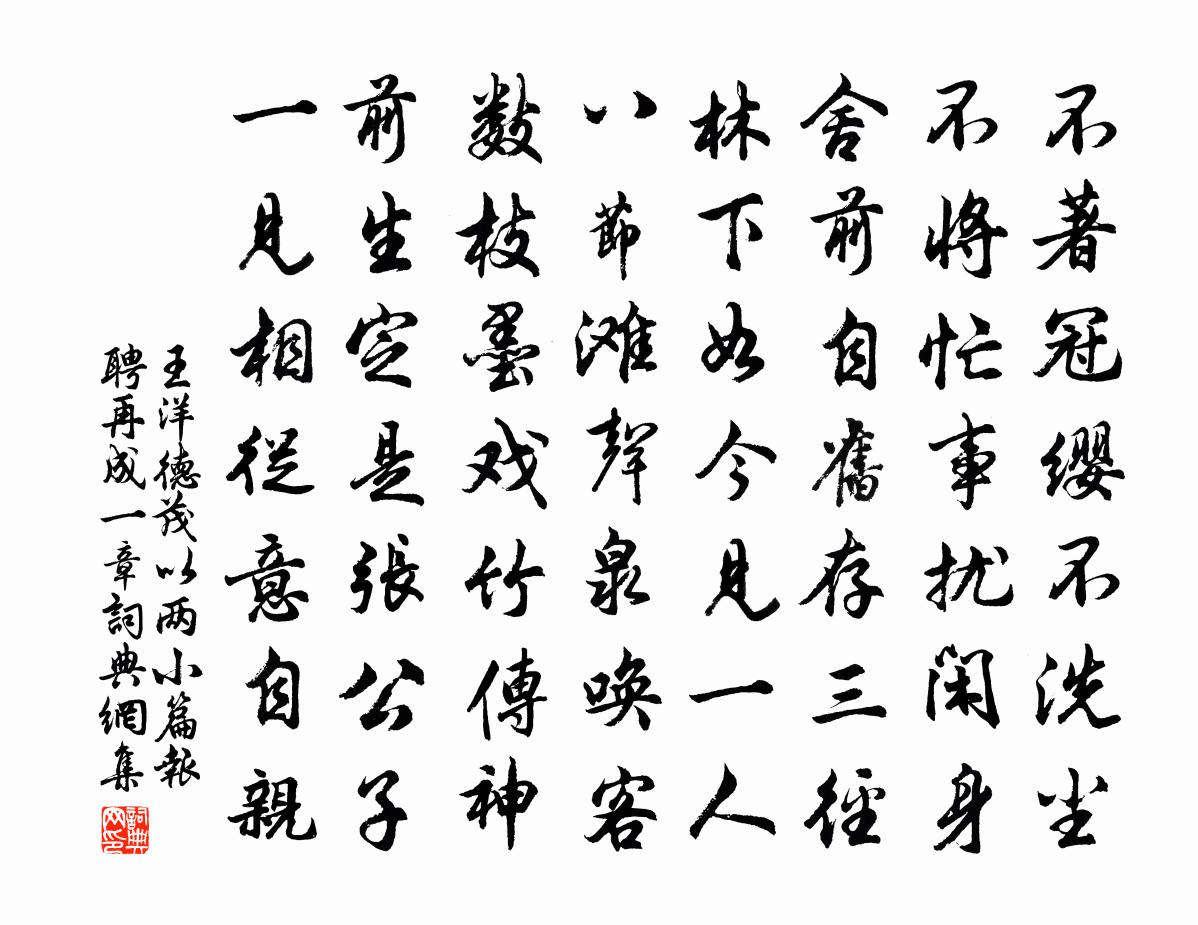 不著冠缨不洗尘
不将忙事扰闲身
舍前自舊存三径
林下如今见一人
八節滩聲泉唤客
数枝墨戏竹傳神
前生定是張公子
一见相從意自親
王洋德茂以两小篇報
聘再成一章詞典網集
詞典
网印